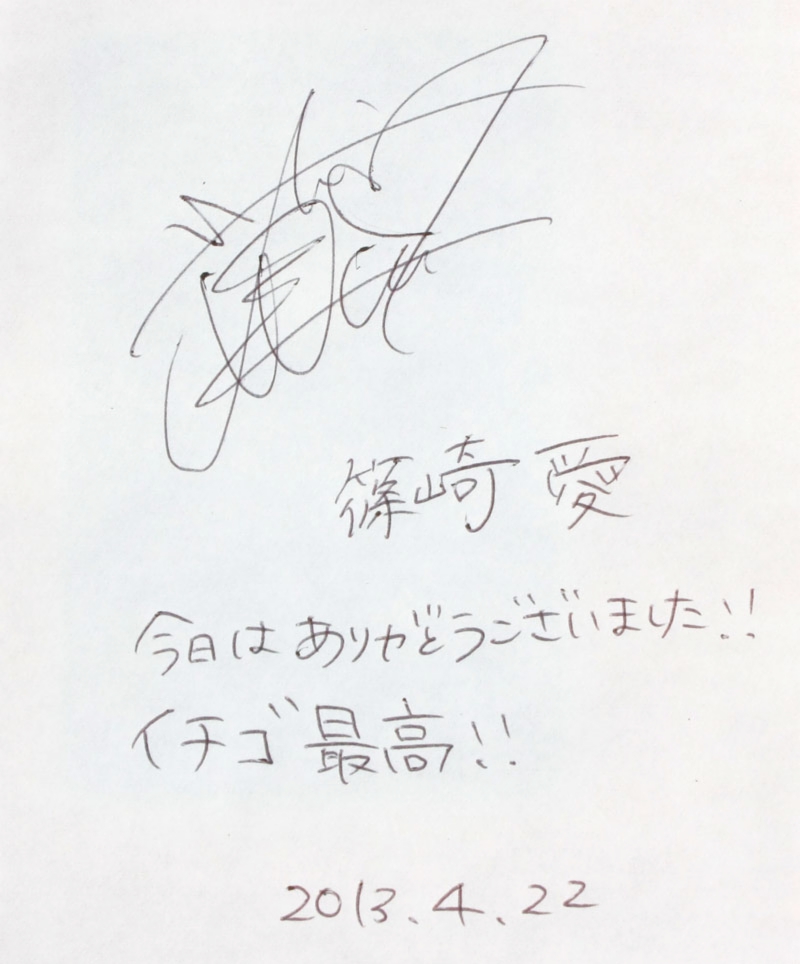 篠崎愛
今日はありがとうございました!!
イチゴ最高!!
2013.4.22